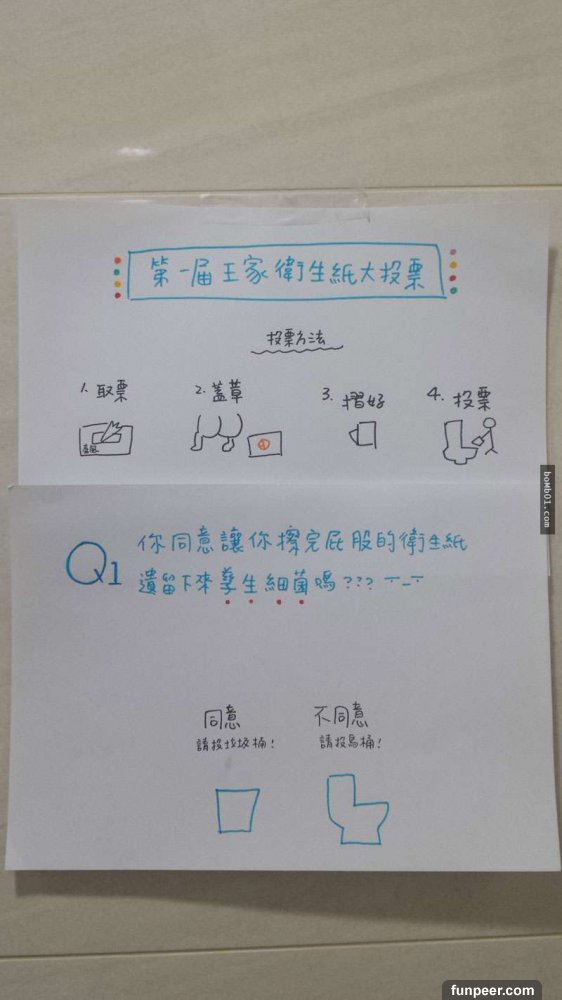 第一屆王家衛生紙大投票
投票方法
1. 取票
2. 蓋章
3. 摺好
4. 投票
Q1 你同意讓你擦完屁股的衛生紙
遺留下來孳生細菌嗎???
同意
請投垃圾桶!
不同意
請投馬桶!
bomb01.com
funpeer.com